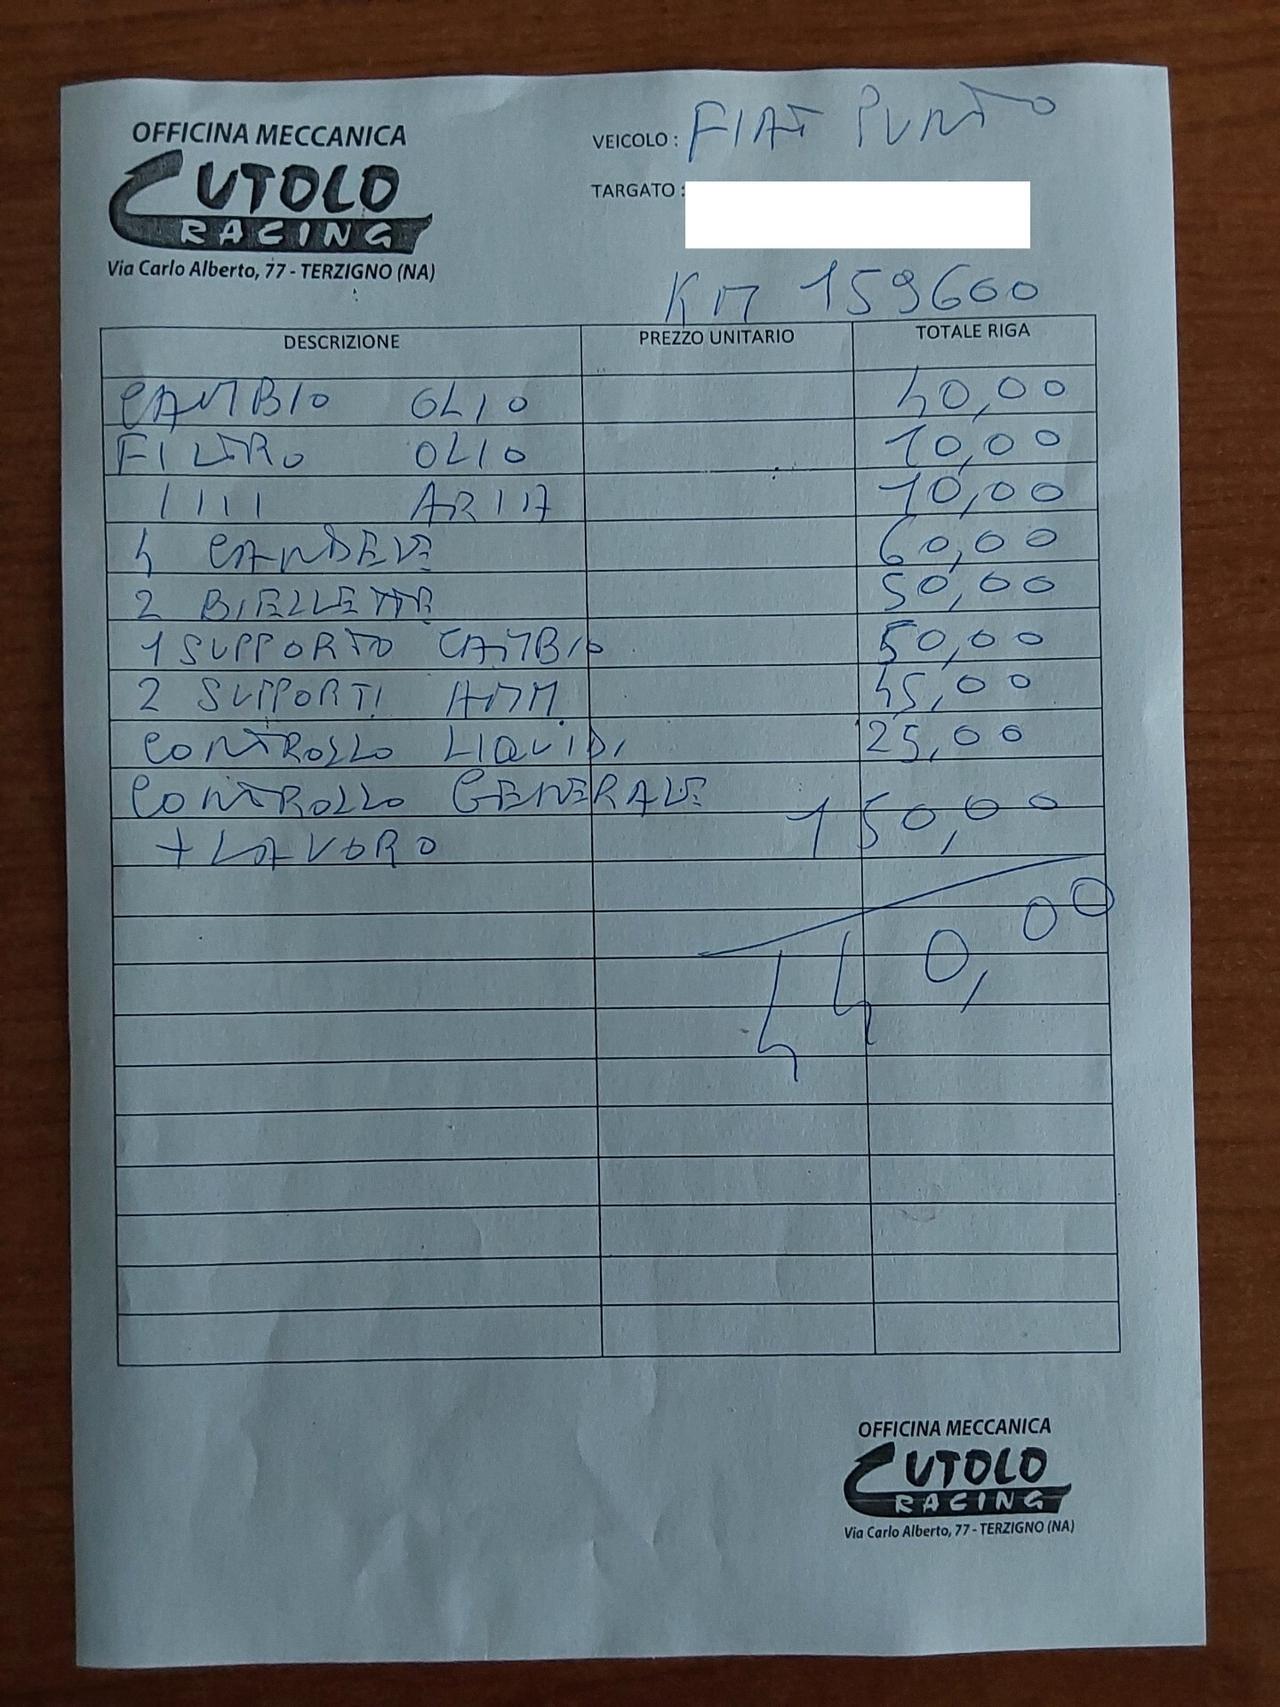 OFFICINA MECCANICA
CUTOLO
RACING
Via Carlo Alberto, 77 - TERZIGNO (NA)
VEICOLO : FIAT PUNTO
TARGATO :
KM 159600
DESCRIZIONE PREZZO UNITARIO TOTALE RIGA
CAMBIO OLIO 40,00
FILTRO OLIO 10,00
1111 ARIA 10,00
4 CANDELE 60,00
2 BIELLETTE 50,00
1 SUPPORTO CAMBIO 50,00
2 SUPPORTI AMM. 45,00
CONTROLLO LIQUIDI 25,00
CONTROLLO GENERALE
+ LAVORO 150,00
440,00
OFFICINA MECCANICA
CUTOLO
RACING
Via Carlo Alberto, 77 - TERZIGNO (NA)